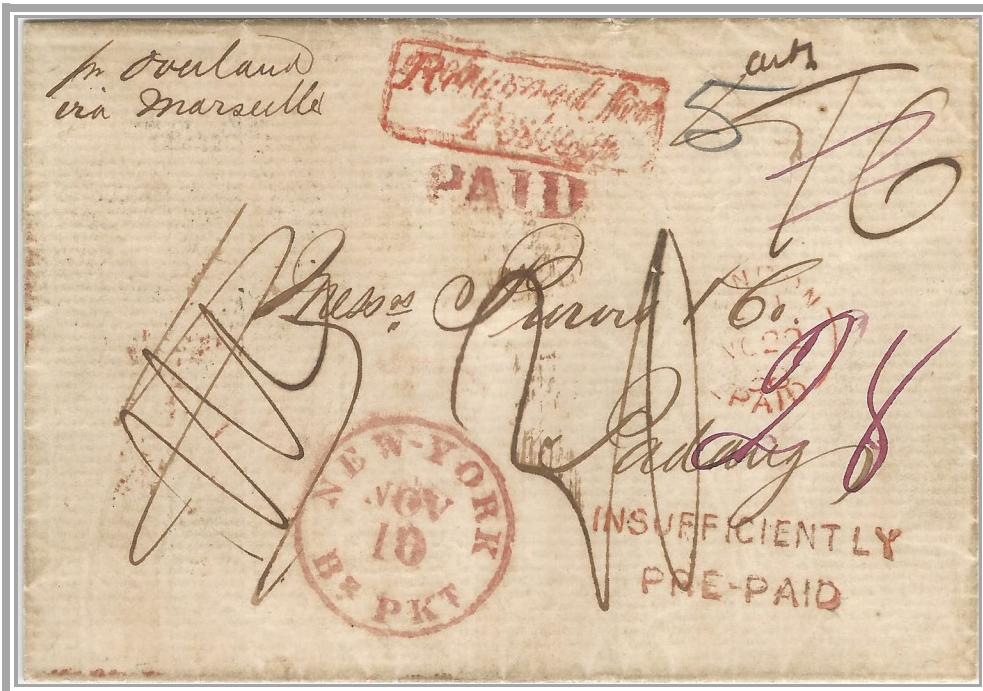 pr Overland
via Marseille
Returned for
Postage
PAID
cents
5
76
Messrs. & Co.
Padang
28
PAID
NEW-YORK
NOV
10
Br PKT
INSUFFICIENTLY
PRE-PAID